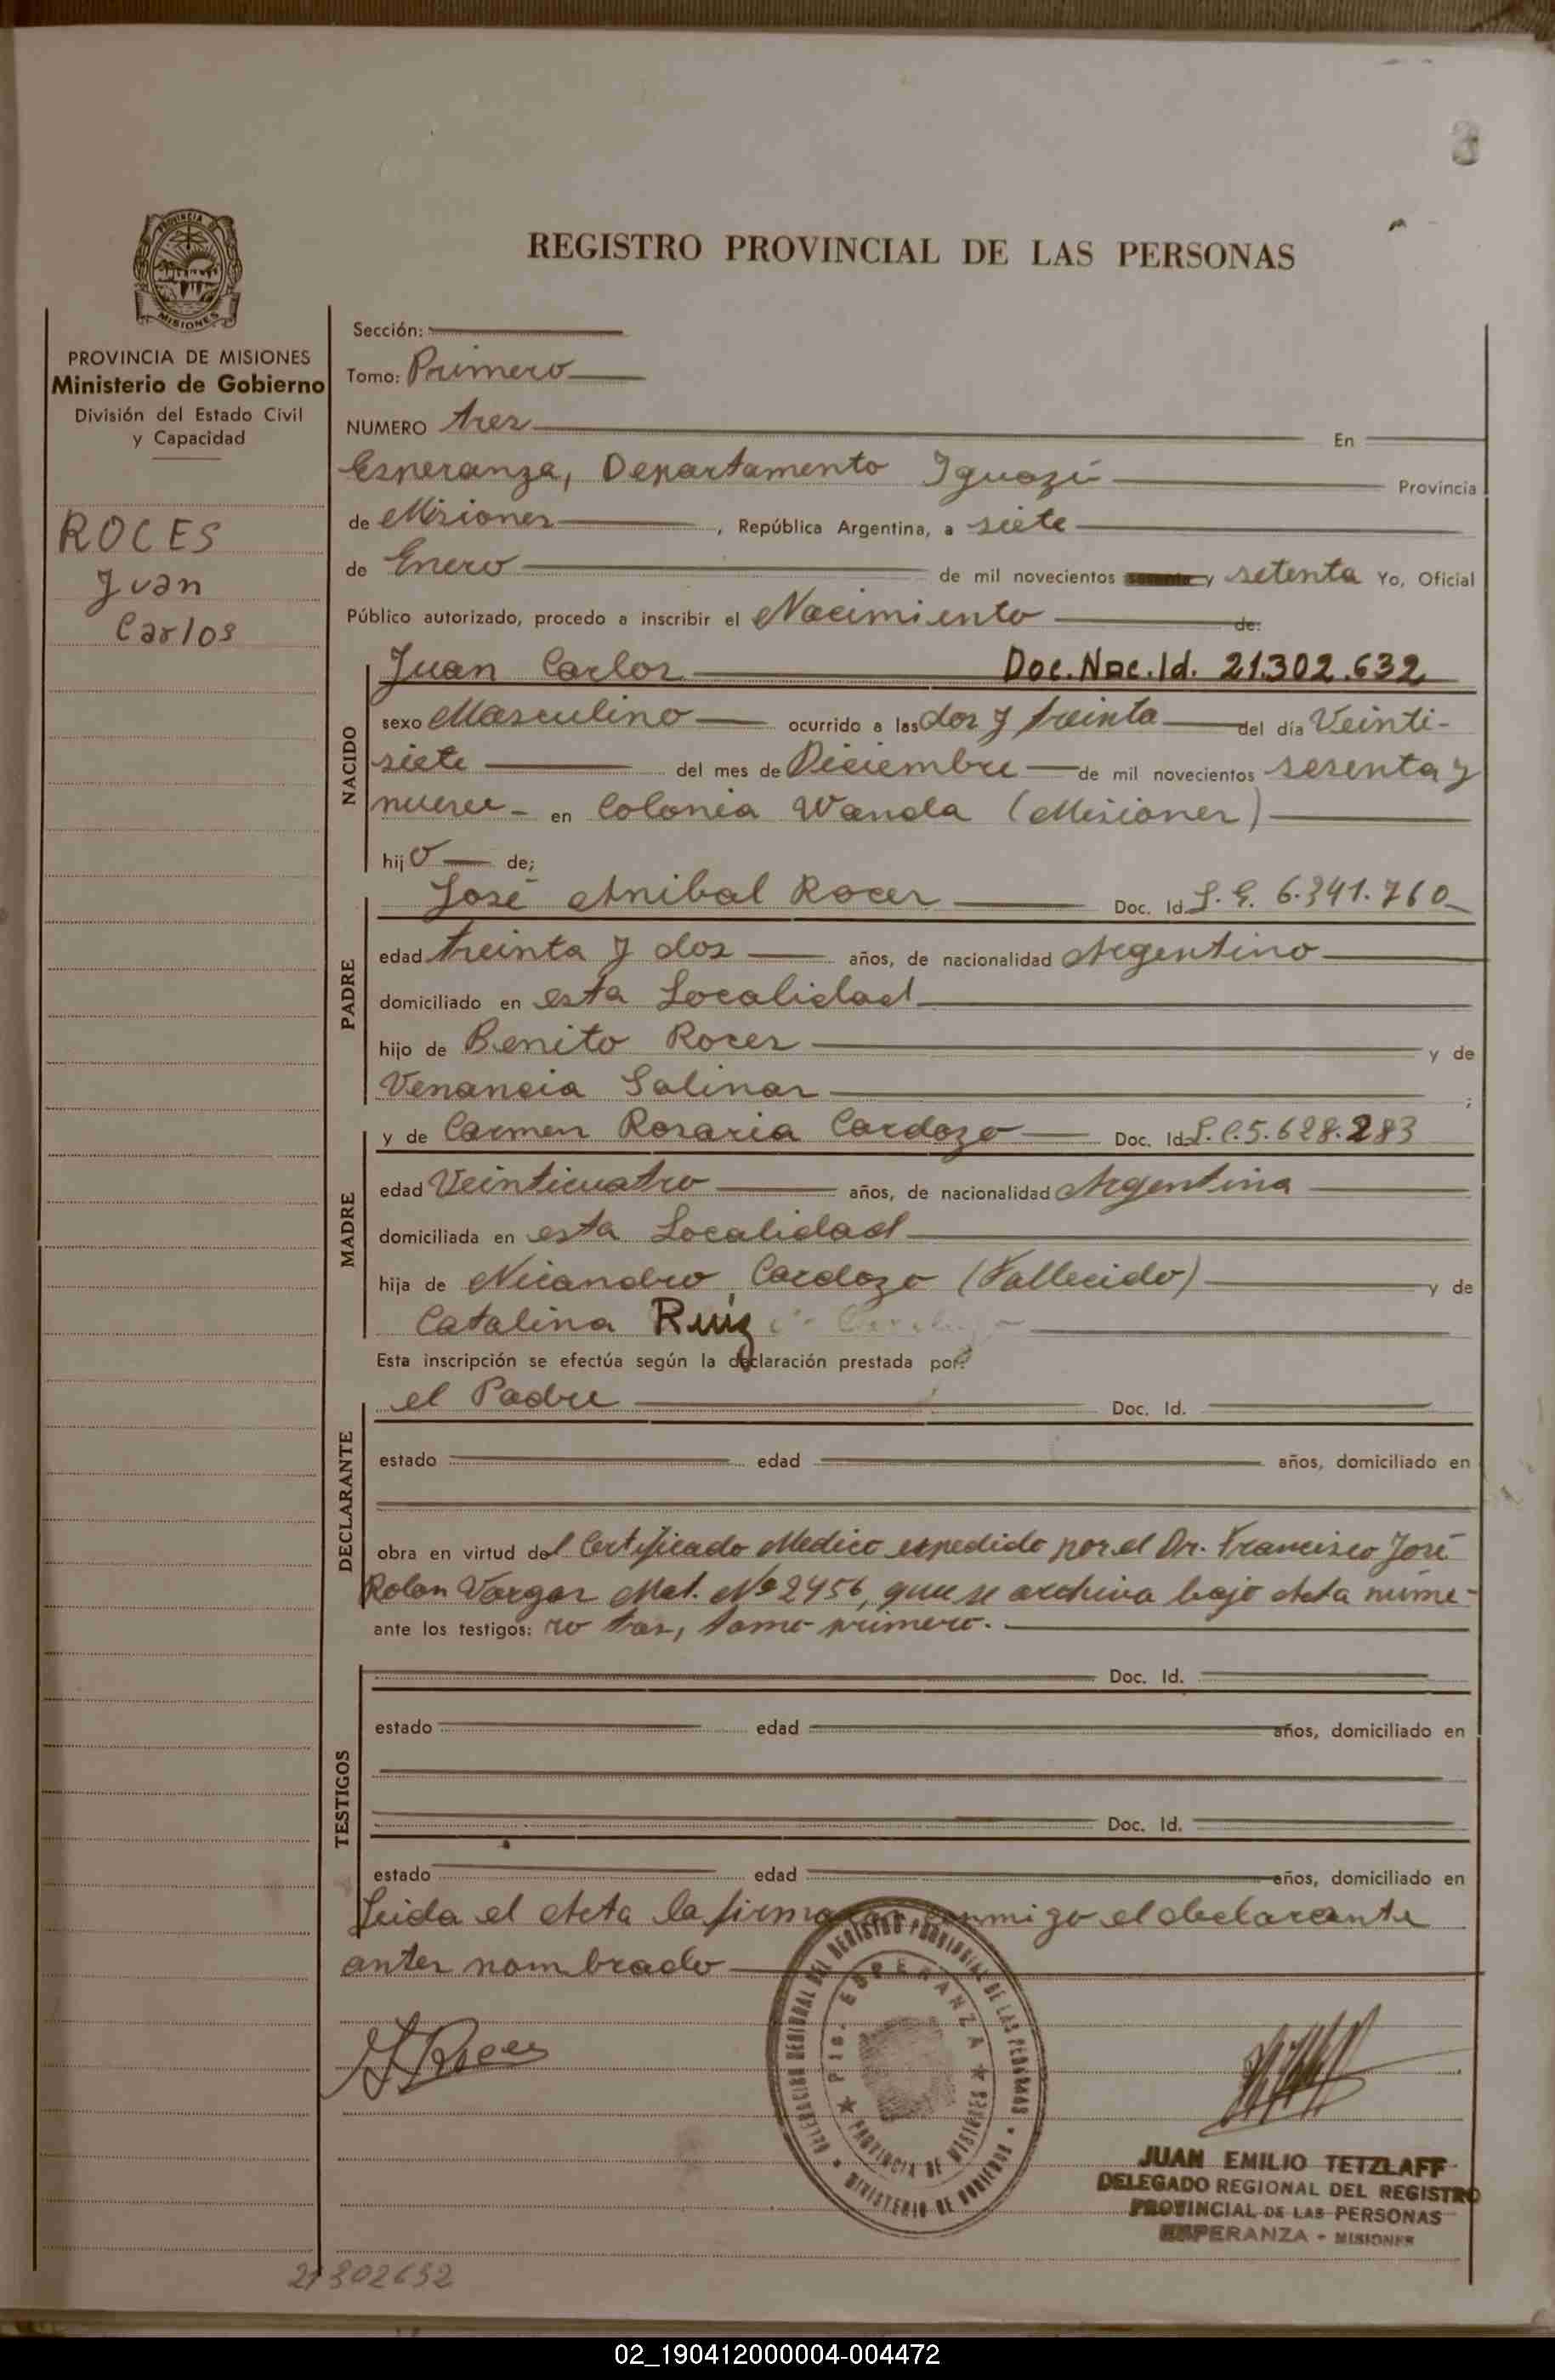 3
REGISTRO PROVINCIAL DE LAS PERSONAS
PROVINCIA DE MISIONES
Ministerio de Gobierno
División del Estado Civil
y Capacidad
ROCES
Juan
Carlos
Sección:
Tomo: Primero
NUMERO tres En
Esperanza, Departamento Iguazú Provincia
de Misiones, República Argentina, a siete
de Enero de mil novecientos y setenta Yo, Oficial
Público autorizado, procedo a inscribir el Nacimiento de:
Juan Carlos Doc. Nac. Id. 21.302.632
NACIDO
sexo Masculino ocurrido a las dos y treinta del día Veinti-
siete del mes de Diciembre de mil novecientos sesenta y
nueve - en Colonia Wanda (Misiones)
hijo de;
PADRE
José Anibal Roces Doc. Id. L. E. 6.341.760
edad treinta y dos años, de nacionalidad Argentino
domiciliado en esta Localidad
hijo de Benito Roces y de
Venancia Salinas ;
MADRE
y de Carmen Rosaria Cardozo Doc. Id. L.C. 5.628.283
edad Veinticuatro años, de nacionalidad Argentina
domiciliada en esta Localidad
hija de Nicandro Cardozo (Fallecido) y de
Catalina Ruiz
Esta inscripción se efectúa según la declaración prestada por:
DECLARANTE
el Padre Doc. Id.
estado edad años, domiciliado en
obra en virtud del Certificado Medico expedido por el Dr. Francisco José
Rolon Vargas Mat. Nº 2456, que se archiva bajo Acta núme-
ante los testigos: ro tres, tomo primero.
TESTIGOS
Doc. Id.
estado edad años, domiciliado en
Doc. Id.
estado edad años, domiciliado en
Leida el Acta la firma conmigo el declarante
antes nombrado
Roces
DELEGACION REGIONAL DEL REGISTRO PROVINCIAL DE LAS PERSONAS
Pto. ESPERANZA
PROVINCIA DE MISIONES
MINISTERIO DE GOBIERNO
JUAN EMILIO TETZLAFF
DELEGADO REGIONAL DEL REGISTRO
PROVINCIAL DE LAS PERSONAS
ESPERANZA - MISIONES
21302632
02_190412000004-004472